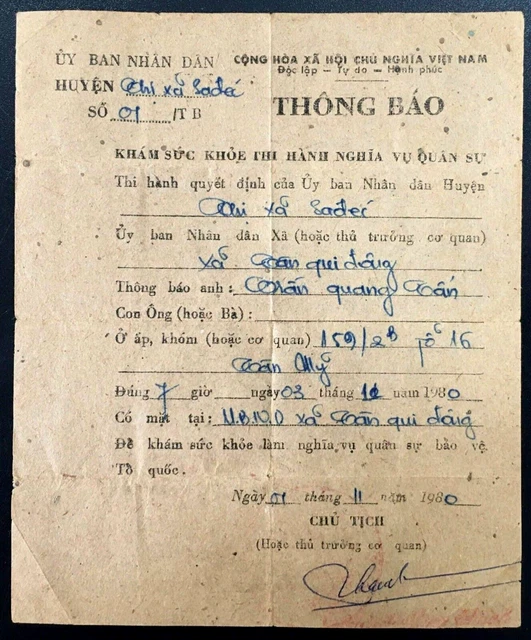 ỦY BAN NHÂN DÂN
HUYỆN Thị xã Sađéc
SỐ 01 /TB
CỘNG HÒA XÃ HỘI CHỦ NGHĨA VIỆT NAM
Độc lập - Tự do - Hạnh phúc
THÔNG BÁO
KHÁM SỨC KHỎE THI HÀNH NGHĨA VỤ QUÂN SỰ
Thi hành quyết định của Ủy ban Nhân dân Huyện
Thị xã Sađéc
Ủy ban Nhân dân Xã (hoặc thủ trưởng cơ quan)
xã Tân qui đông
Thông báo anh : Trần quang Tấn
Con Ông (hoặc Bà) :
Ở ấp, khóm (hoặc cơ quan) 159/2B tổ 16
Tân Mỹ
Đúng 7 giờ ngày 03 tháng năm 1980
Có mặt tại : U.B.N.D xã Tân qui đông
Để khám sức khỏe làm nghĩa vụ quân sự bảo vệ
Tổ quốc.
Ngày 01 tháng 11 năm 1980
CHỦ TỊCH
(Hoặc thủ trưởng cơ quan)